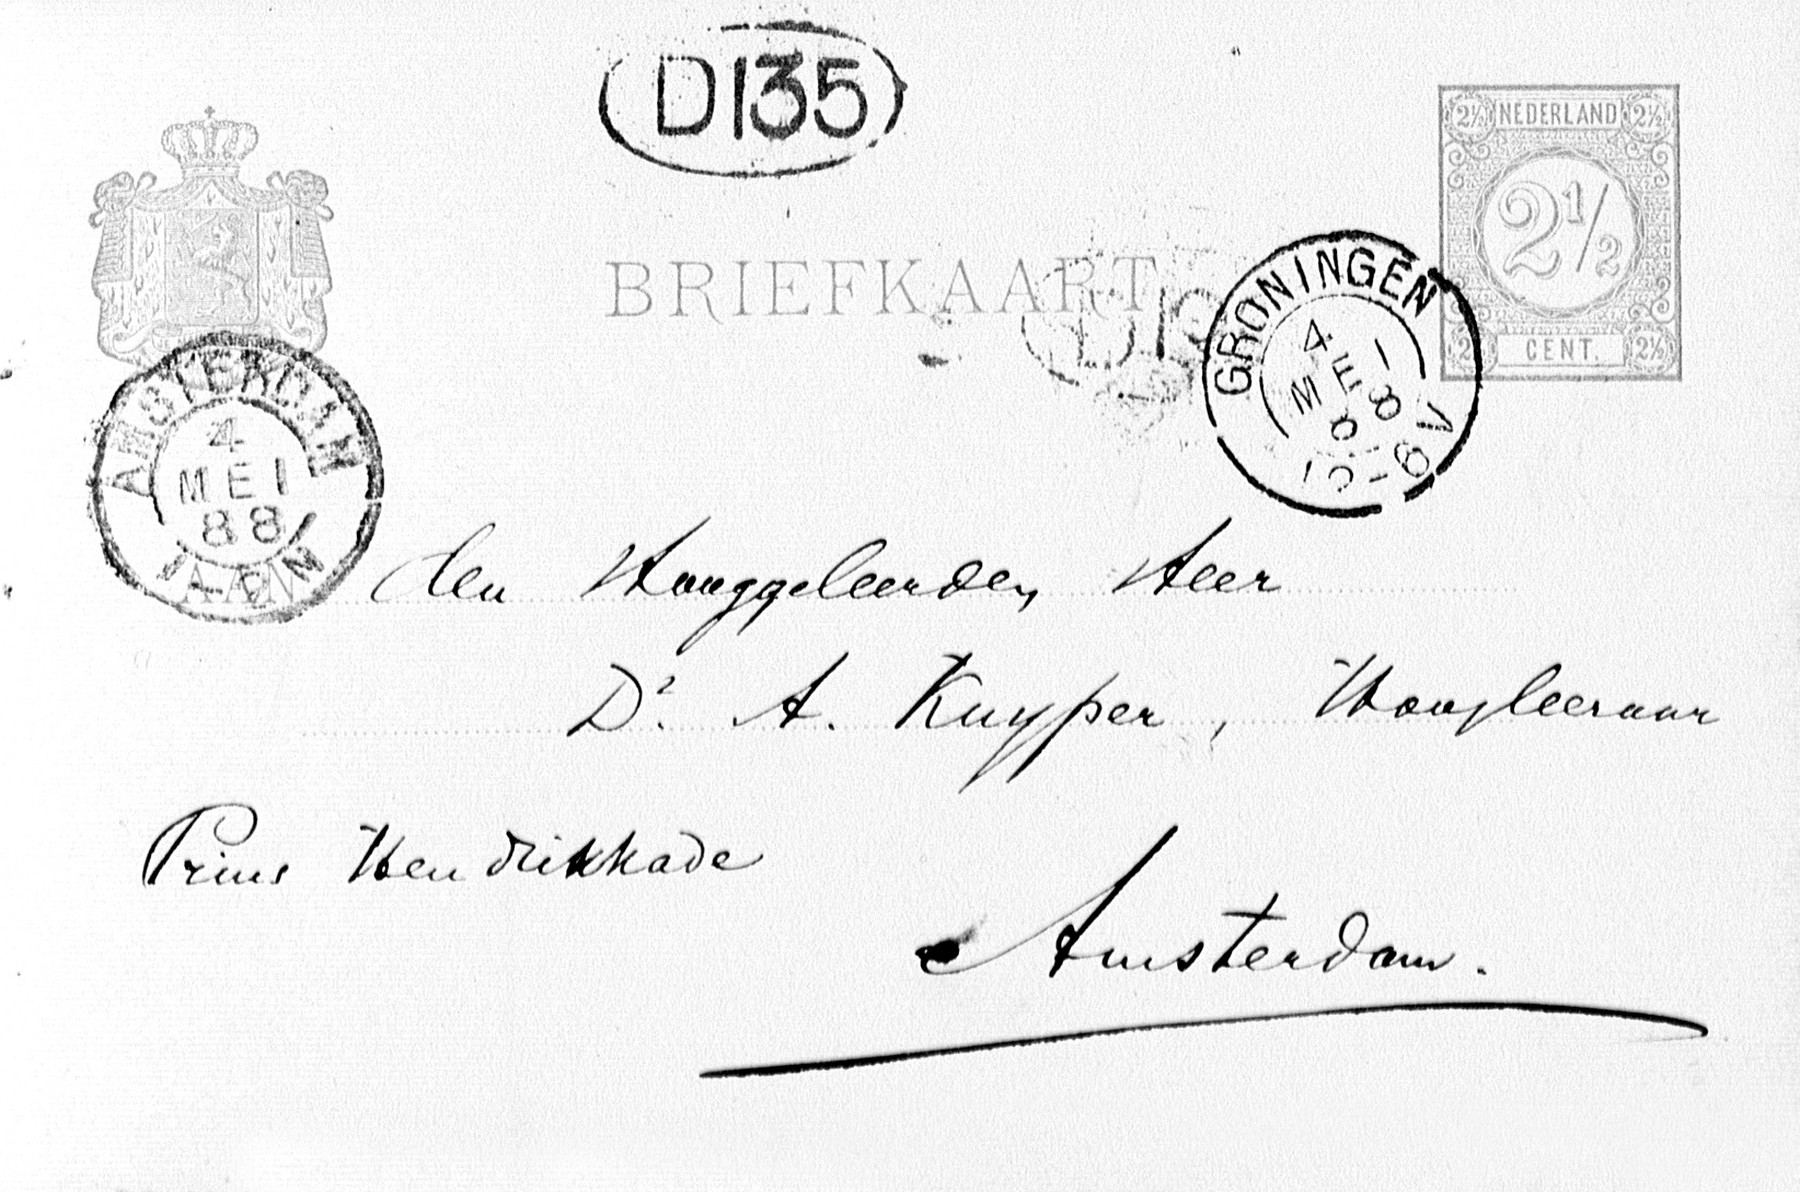 D135
2½ NEDERLAND 2½
2½
2½ CENT. 2½
BRIEFKAART
GRONINGEN
4 MEI 88
12-6V
AMSTERDAM
4
MEI
88
AAN
den Hooggeleerden Heer
Dr. A. Kuyper, Hoogleeraar
Prins Hendrikkade
Amsterdam.